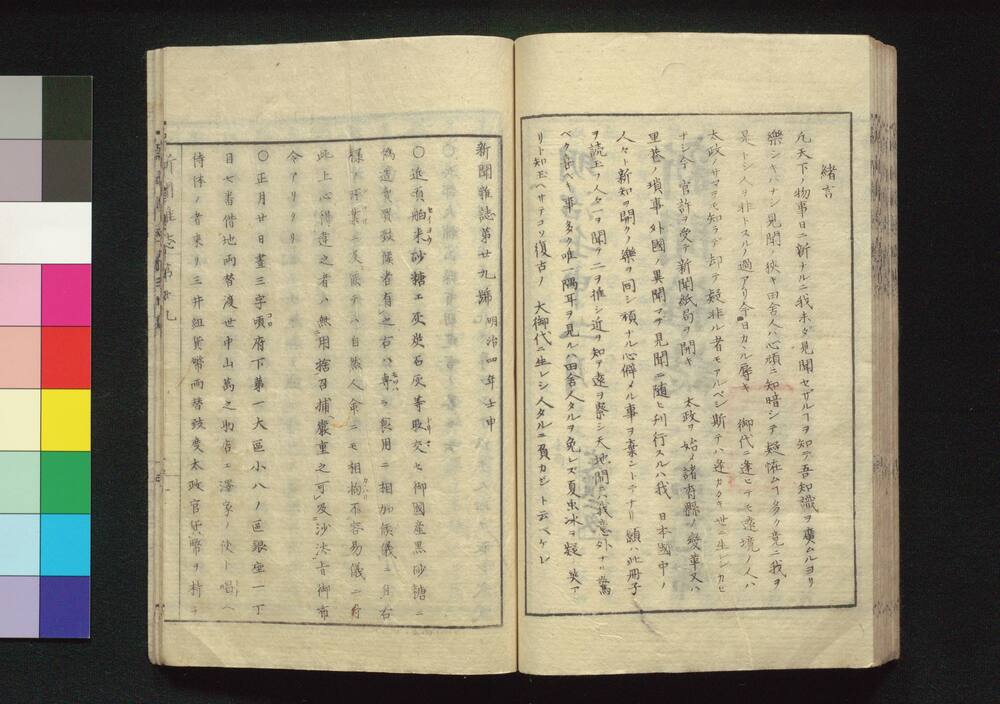 緒言
凡天下ノ物事日ニ新ナルニ我未タ見聞セザルヿヲ知テ吾知識ヲ廣ムルヨリ
樂シキハナシ見聞狭キ田舎人ハ心頑ニ知暗シテ疑恠ムヿ多ク竟ニ我ヲ
是トシ人ヲ非トスルノ過アリ今日カヽル辱キ 御代ニ逢ヒテモ邊境ノ人ハ
太政ノサマヲモ知ラデ却テ疑非ル者モアルベシ斯テハ逢カタキ世ニ生レシカヒ
ナシ今 官許ヲ受テ新聞紙局ヲ開キ 太政ヲ始メ諸府縣ノ變革又ハ
里巷ノ瑣事外國ノ異聞マデ見聞ニ随ヒ刊行スルハ我 日本國中ノ
人々ト新知ヲ開クノ樂ヲ同シ頑ナル心僻メル事ヲ棄ントテナリ願ハ此冊子
ヲ読玉フ人々一ヲ聞テ二ヲ推シ近ヲ知テ遠ヲ察シ天地間ニハ我意外ナル驚
ベク喜ベキ事多ク唯一隅耳ヲ見ルハ田舎人タルヲ免レズ夏虫氷ヲ疑フ笑フ
リト知玉ヘサテコソ復古ノ 大御代ニ生レシ人タルニ負カズト云ベケレ
新聞雜誌第廿九號 明治四年壬申
〇近頃舶来砂糖エ灰炭石灰等取交セ御國産黒砂糖ニ
偽造賣買致候者有之右ハ専ラ製用ニ相加候儀ニ付右
様ノ所業ニ及候テハ自然人命ニモ相拘不容易儀ニ付
此上心得違之者ハ無用捨召捕嚴重之可及沙汰旨御布
令アリタリ
〇正月廿日晝三字頃府下第一大區小八ノ區銀座一丁
目七番借地両替渡世中山萬之助店エ澤家ノ使ト唱ヘ
侍体ノ者来リ三井組貨幣両替致度太政官貨幣ヲ持テ